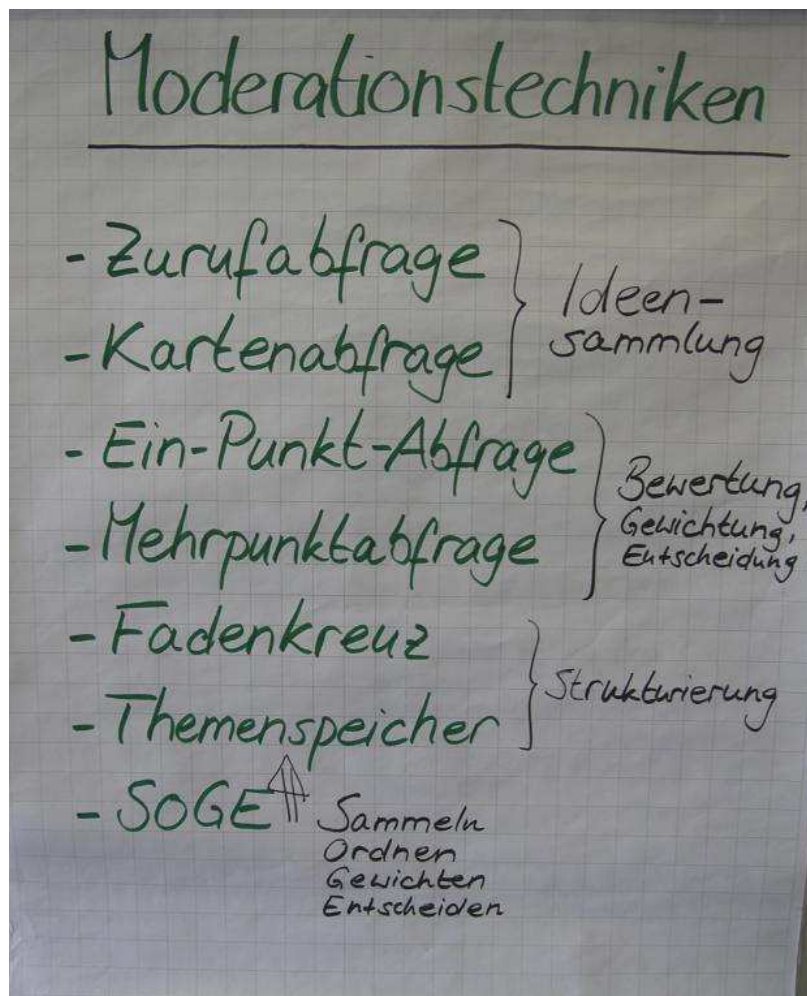 Moderationstechniken
- Zurufabfrage
- Kartenabfrage
Ideen-
sammlung
- Ein-Punkt-Abfrage
- Mehrpunktabfrage
Bewertung,
Gewichtung,
Entscheidung
- Fadenkreuz
- Themenspeicher
Strukturierung
- SOGE
Sammeln
Ordnen
Gewichten
Entscheiden